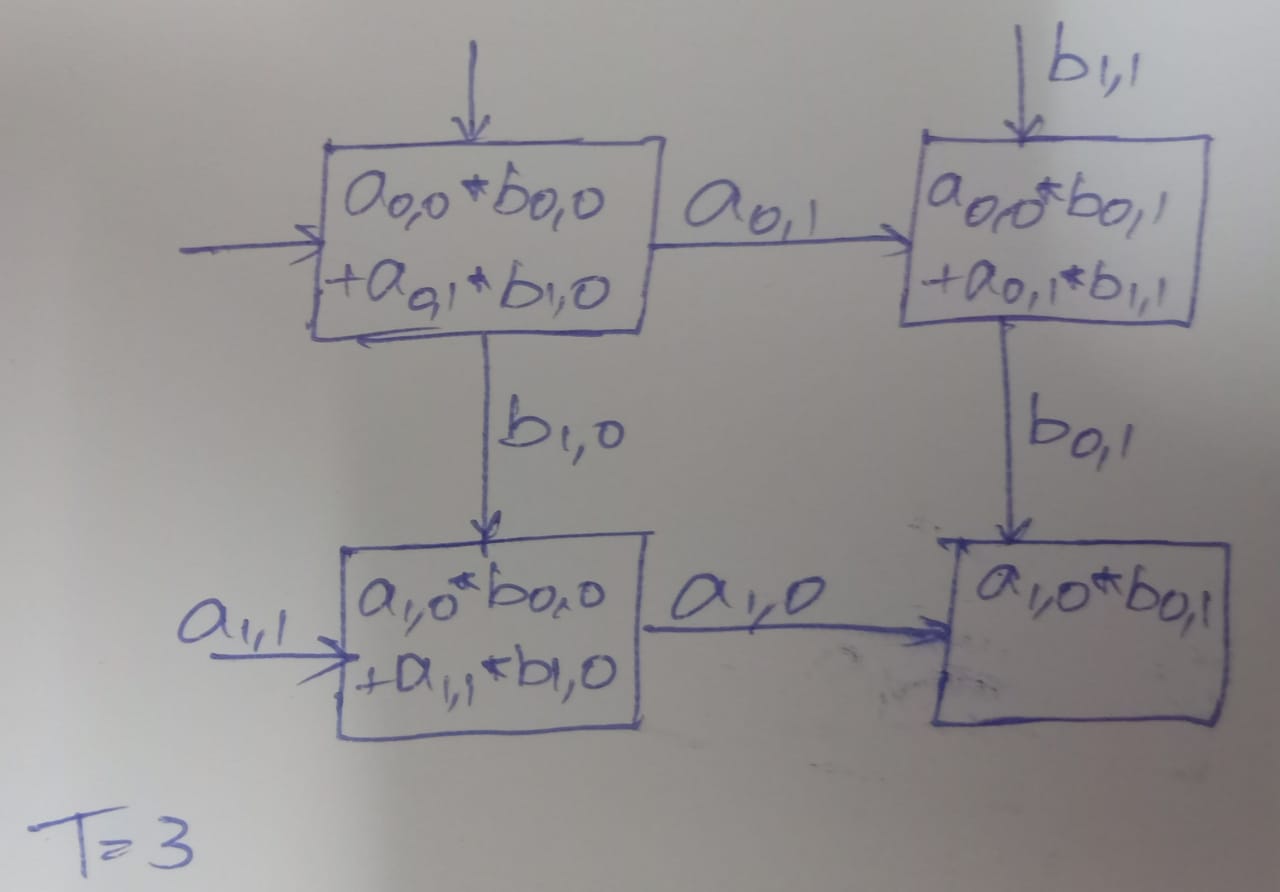 b1,1
a0,0*b0,0
+a0,1*b1,0
a0,1
a0,0*b0,1
+a0,1*b1,1
b1,0
b0,1
a1,1
a1,0*b0,0
+a1,1*b1,0
a1,0
a1,0*b0,1
T=3